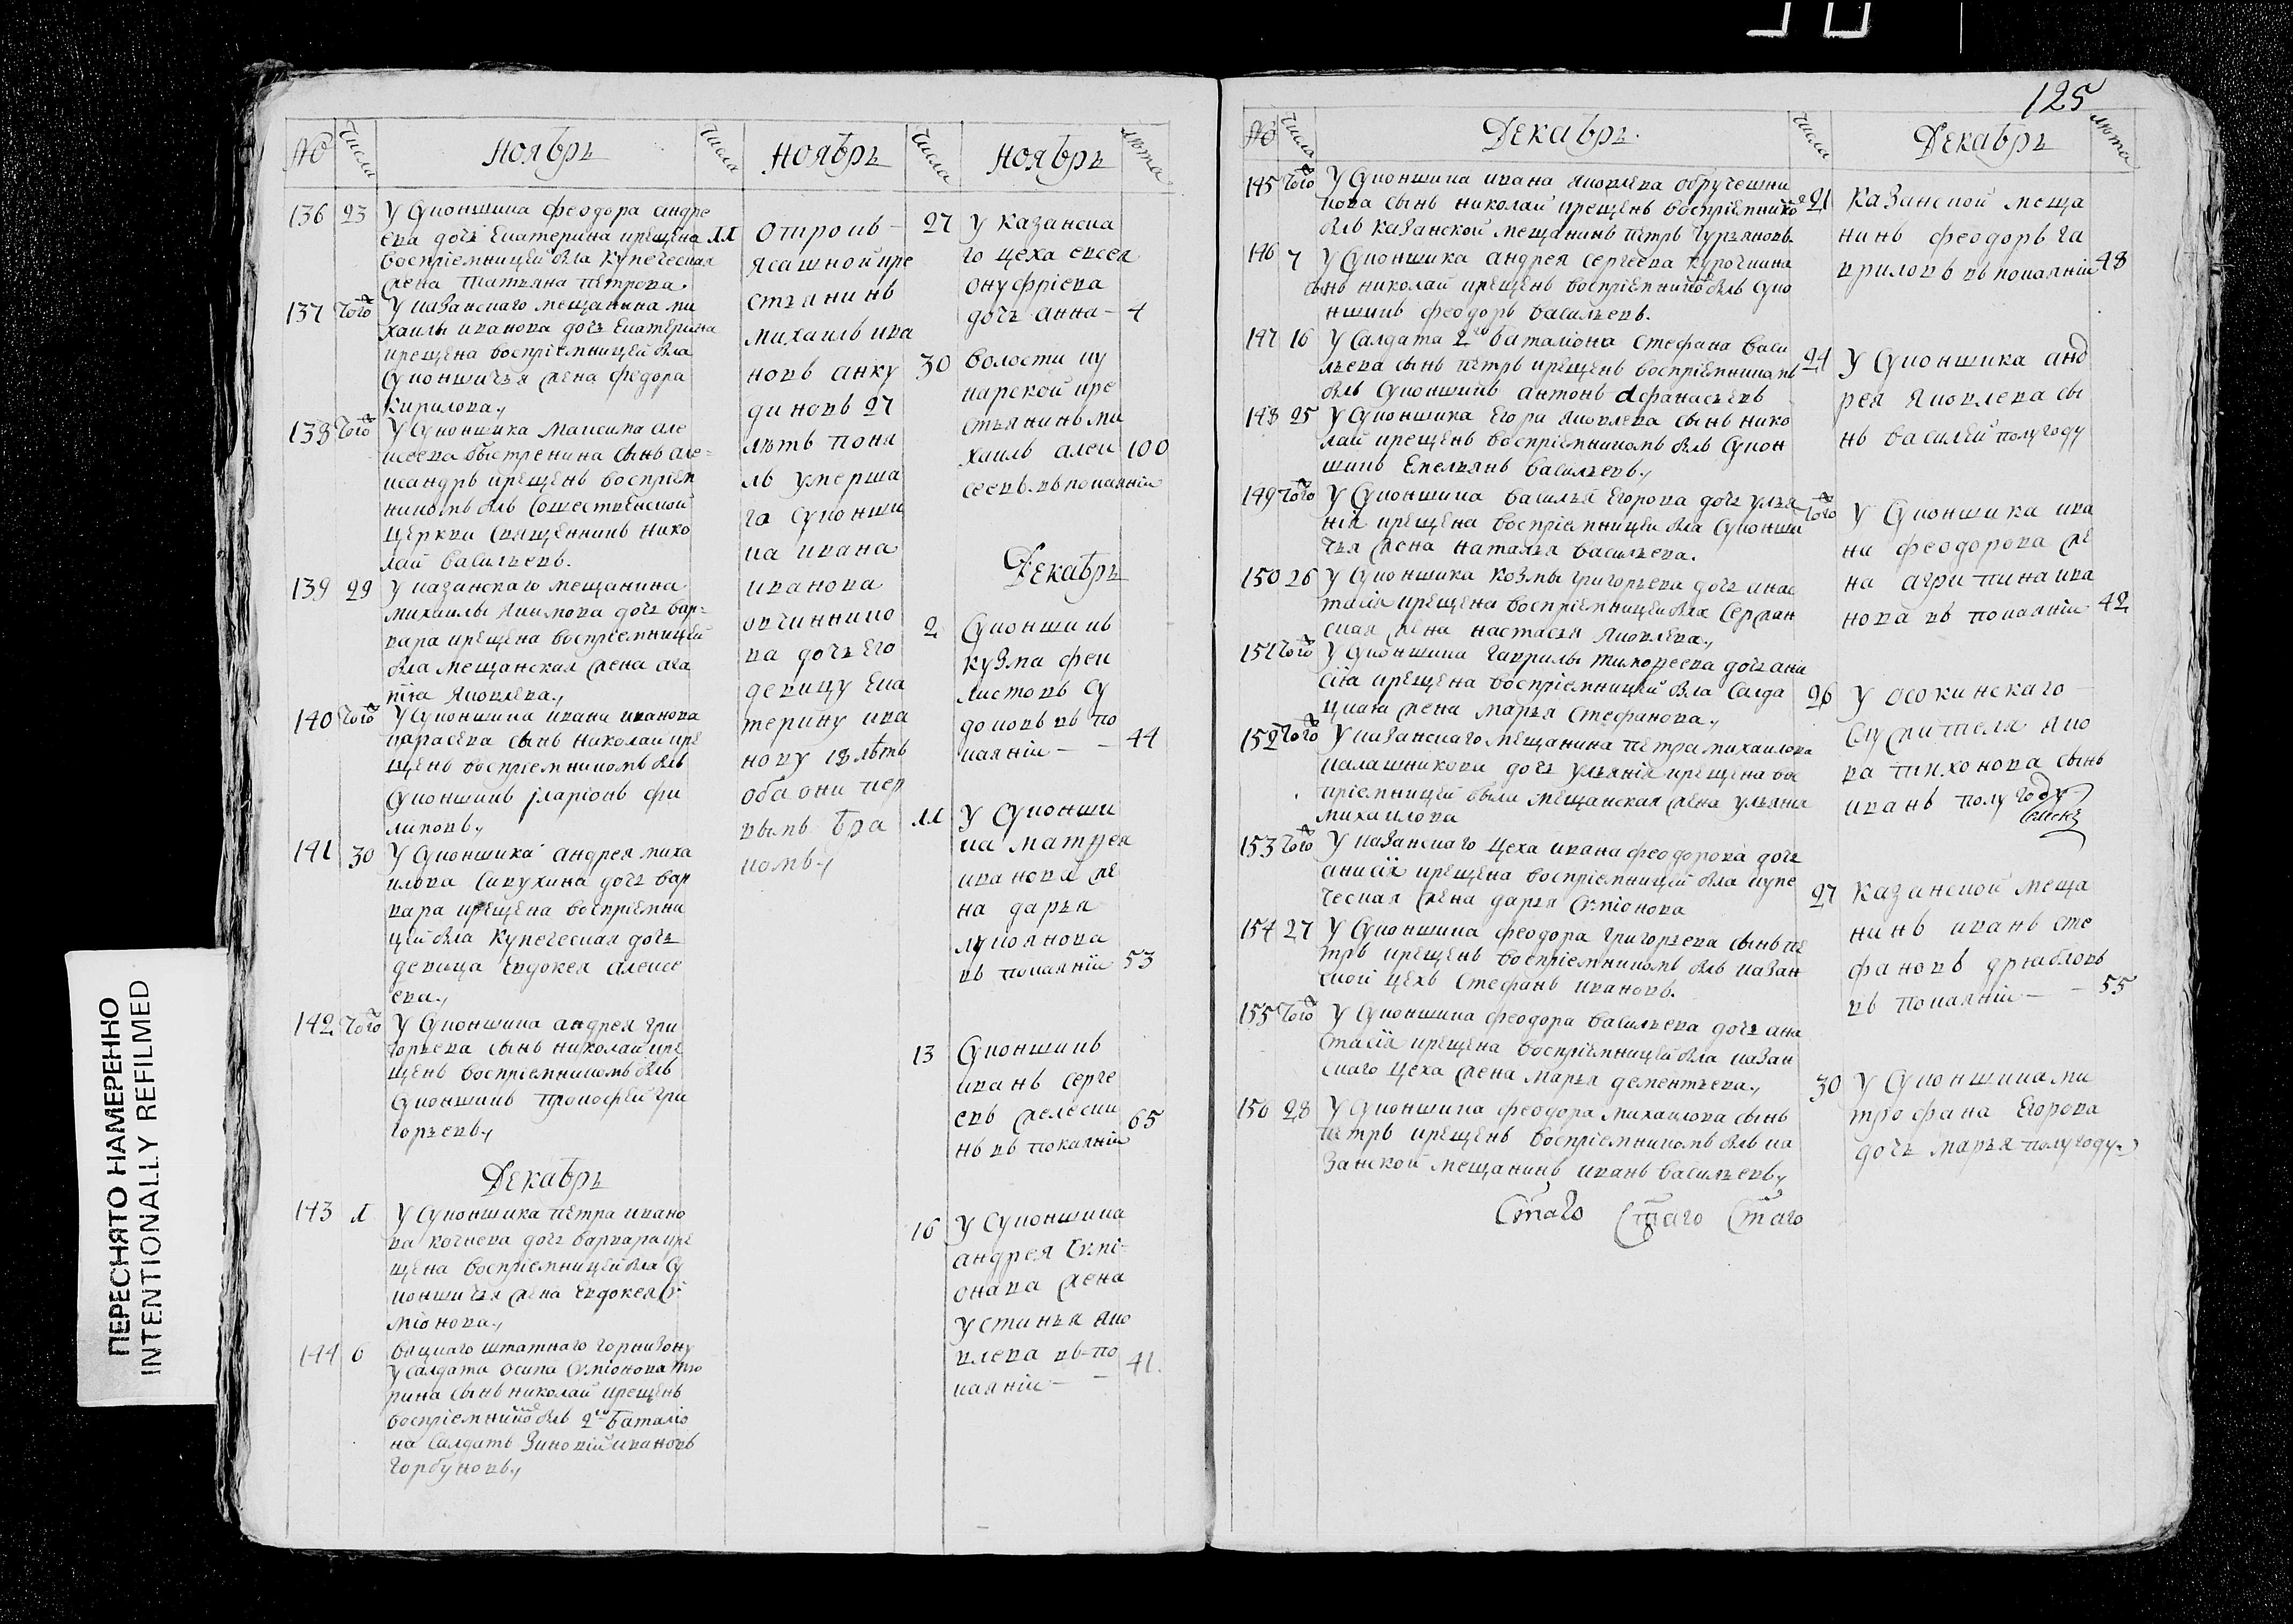 125
№
числа
Ноябрь
числа
Ноябрь
числа
Ноябрь
лѣта
136 23 У Суконщика феодора андре
ева дочь Екатерина крещена
воспріемницей была купеческая
жена татьяна петрова.
137 того У казанскаго мещанина ми
хаилы иванова дочь Екатерина
крещена воспріемницей была
Суконщичья жена федора
Кирилова,
138 того У Суконщика Максима але
ксеева быстренина сынъ але=
ксандръ крещенъ воспріем
никомъ былъ Сошественской
церкви Священникъ нико
лай васильевъ.
139 29 У казанскаго мещанина
михаилы якимова дочь вар=
вара крещена воспріемницей
была мещанская жена ага
пія яковлева,
140 того У Суконщика ивана иванова
карасева сынъ николай кре
щенъ воспріемникомъ былъ
Суконщикъ іларіонъ фи
липовъ,
141 30 У Суконщика андрея миха
илова Савухина дочь вар
вара крещена воспріемни
цей была купеческая дочь
девица евдокея алексе
ева,
142 того У Суконщика андрея гри
горьева сынъ николай кре
щенъ воспріемникомъ былъ
Суконщикъ прокофей гри
горьевъ,
Декабрь
143 1 У Суконщика петра ивано
ва кочнева дочь варвара кре
щена воспріемницей была Су
конщичья жена евдокея Се
міонова,
144 6 вяцкаго штатнаго горнизону
у Салдата осипа Семіонова тю
рина сынъ николай крещенъ
воспріемникомъ былъ 2го баталіо
на Салдатъ Зиновій ивановъ
горбуновъ,
11 отрокъ
ясашной кре
стьянинъ
михаилъ ива
новъ анку
диновъ 27
лѣтъ поня
лъ умерша
го Суконщи
ка ивана
иванова
овчиннико
ва дочь его
девицу ека
терину ива
нову 18 лѣтъ
оба они пер
вымъ бра
комъ,
27 У казанска
го цеха евсея
онуфріева
дочь анна — 4
30 волости цу
нарской кре
стьянинъ ми
хаилъ алек 100
сеевъ въ покаяніи
Декабрь
2 Суконщикъ
кузма феи
листовъ Су
доковъ въ по
каяніи — 44
11 У Суконщи
ка матвея
иванова же
на дарья
лукоянова
въ покаяніи 53
13 Суконщикъ
иванъ серге
евъ желески
нъ въ покаяніи 65
16 У Суконщика
андрея Семі=
онова жена
устинья яко
влева въ по
каяніи — 41.
№
числа
Декабрь.
числа
Декабрь
лѣта
145 того У Суконщика ивана яковлева обручешни
кова сынъ николай крещенъ воспріемнико
былъ казанской мещанинъ петръ гурьяновъ.
146 7 У Суконщика андрея сергеева курочкина
сынъ николай крещенъ воспріемникомъ былъ Суко
нщикъ феодоръ васильевъ.
147 16 У Салдата 2го баталіона стефана васи
льева сынъ петръ крещенъ воспріемникомъ
былъ Суконщикъ антонъ афанасьевъ
148 25 У Суконщика Егора яковлева сынъ нико
лай крещенъ воспріемникомъ былъ Сукон
щикъ Емельянъ васильевъ,
149 того У Суконщика василья Егорова дочь улья
нія крещена воспріемницей была Суконщи
чья жена наталья васильева.
150 26 У Суконщика козмы григорьева дочь анас
тасія крещена воспріемницей была Сержан
ская жена настасья яковлева,
151 того У Суконщика гаврилы тимофеева дочь ани
сіа крещена воспріемницей была Салда
цкая жена марья Стефанова,
152 того У казанскаго мещанина петра михаилова
калашникова дочь ульянія крещена во
пріемницей была мещанская жена ульяна
михаилова
153 того У казанскаго цеха ивана феодорова дочь
анисія крещена воспріемницей была купе
ческая жена дарья Семіонова
154 27 У Суконщика феодора григорьева сынъ пе
тръ крещенъ воспріемникомъ былъ казан
ской цехъ Стефанъ ивановъ.
155 того У Суконщика феодора васильева дочь ана
стасія крещена воспріемницей была казан
скаго цеха жена марья дементьева,
156 28 У Суконщика феодора михаилова сынъ
петръ крещенъ воспріемникомъ былъ ка
занской мещанинъ иванъ васильевъ,
21 казанской меща
нинъ феодоръ га
вриловъ въ покаяніи 48
24 У Суконщика анд
рея яковлева сы
нъ василей полугоду
того У Суконщика ива
на феодорова же
на агрипина ива
нова въ покаяніи 42
26 У осокинскаго
служителя яко
ва тихонова сынъ
иванъ полугоду
27 казанской меща
нинъ иванъ сте
фановъ дрябловъ
въ покаяніи — 55
30 У Суконщика ми
трофана Егорова
дочь марья полугоду
ПЕРЕСНЯТО НАМЕРЕННО
INTENTIONALLY REFILMED